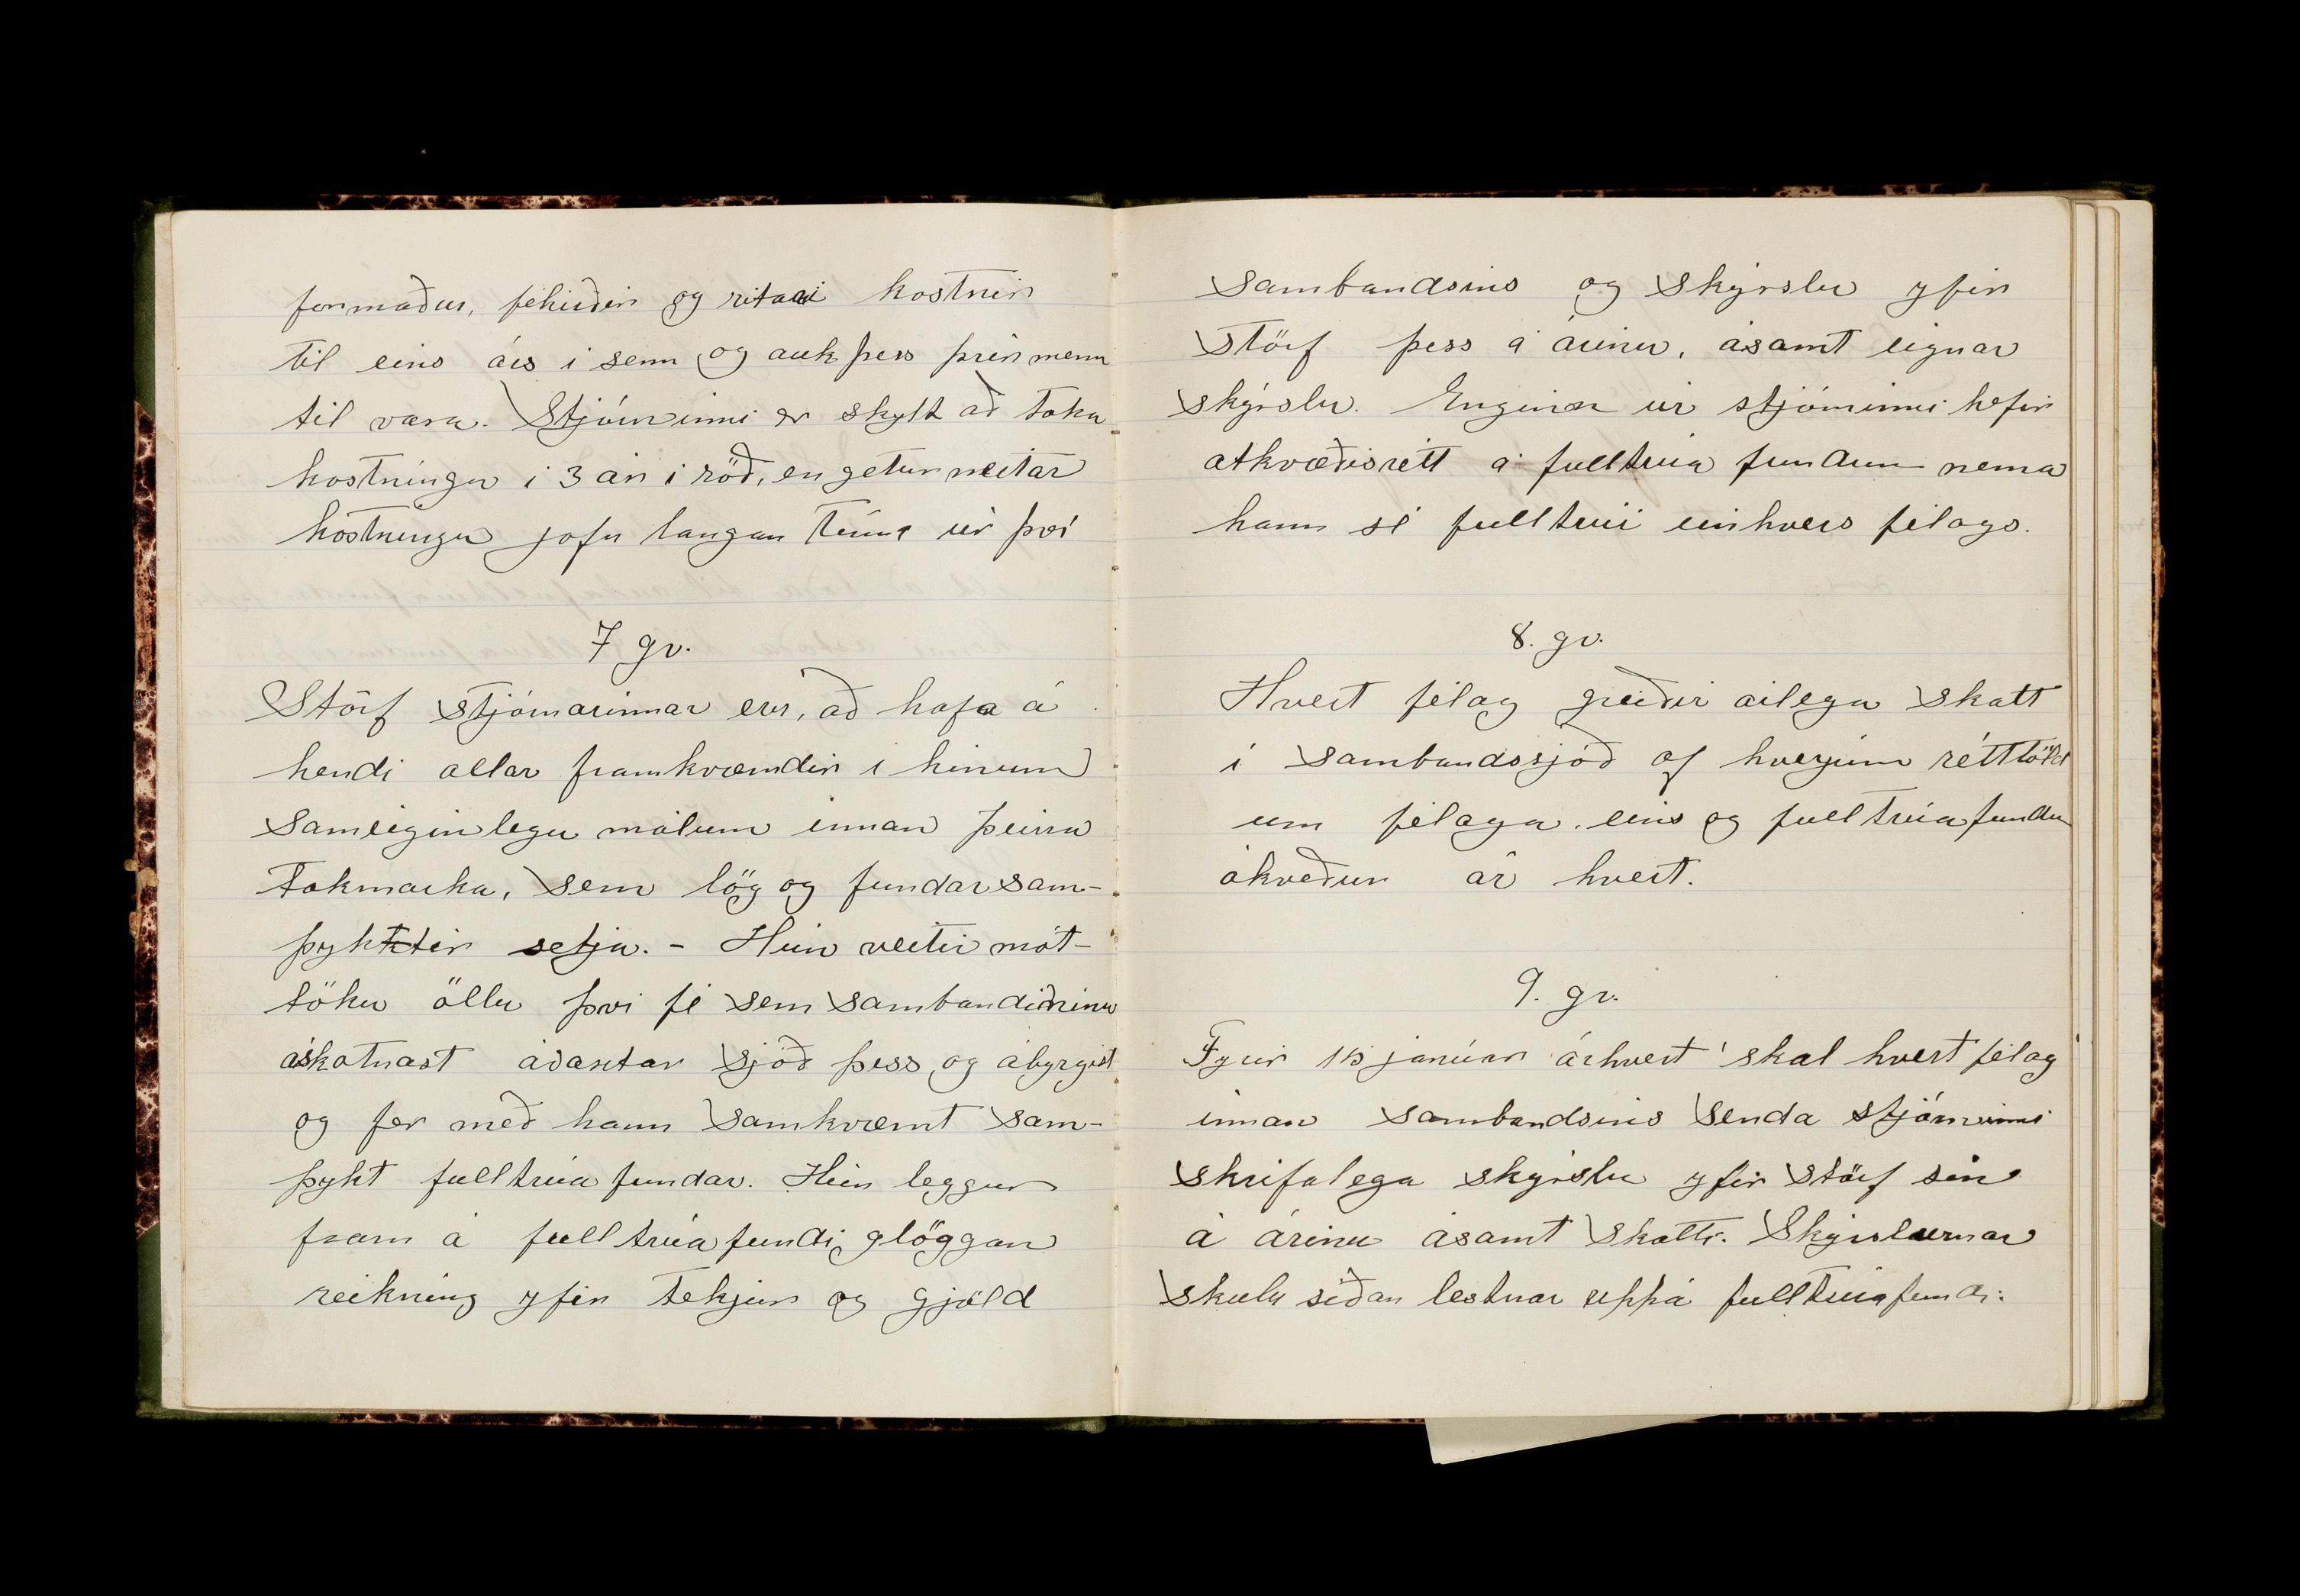 formaður, féhirðir og ritari kostnir
til eins árs í senn og auk þess þrír menn
til vara. Stjórninni er skylt að taka
kostningu í 3 ár í röð, en getur neitað
kostningu jafn langan tíma úr því
7 gr.
Störf stjórnarinnar eru, að hafa á
hendi allar framkvæmdir í hinum
sameiginlegu málum innan þeirra
takmarka, sem lög og fundarsam-
þyktir setja. - Hún veitir mót-
töku öllu því fé sem sambandinu
áskotnast ávaxtar sjóð þess, og ábyrgist
og fer með hann samkvæmt sam-
þykt fulltrúa fundar. Hún leggur
fram á fulltrúafundi glöggan
reikning yfir tekjur og gjöld
sambandsins og skýrslu yfir
störf þess á árinu, ásamt eignar
skýrslu. Enginn úr stjórninni hefir
atkvæðisrétt á fulltrúa fundum nema
hann sé fulltrúi einhvers félags.
8. gr.
Hvert félag greiðir árlega skatt
í sambandssjóð af hverjum rétttöld
um félaga, eins og fulltrúafundur
ákveður ár hvert.
9. gr.
Fyrir 15 janúar árhvert skal hvert félag
innan sambandsins senda stjórninni
skrifalega skýrslu yfir störf sín
á árinu ásamt skatti. Skýrslurnar
skulu síðan lestnar uppá fulltrúafundi.